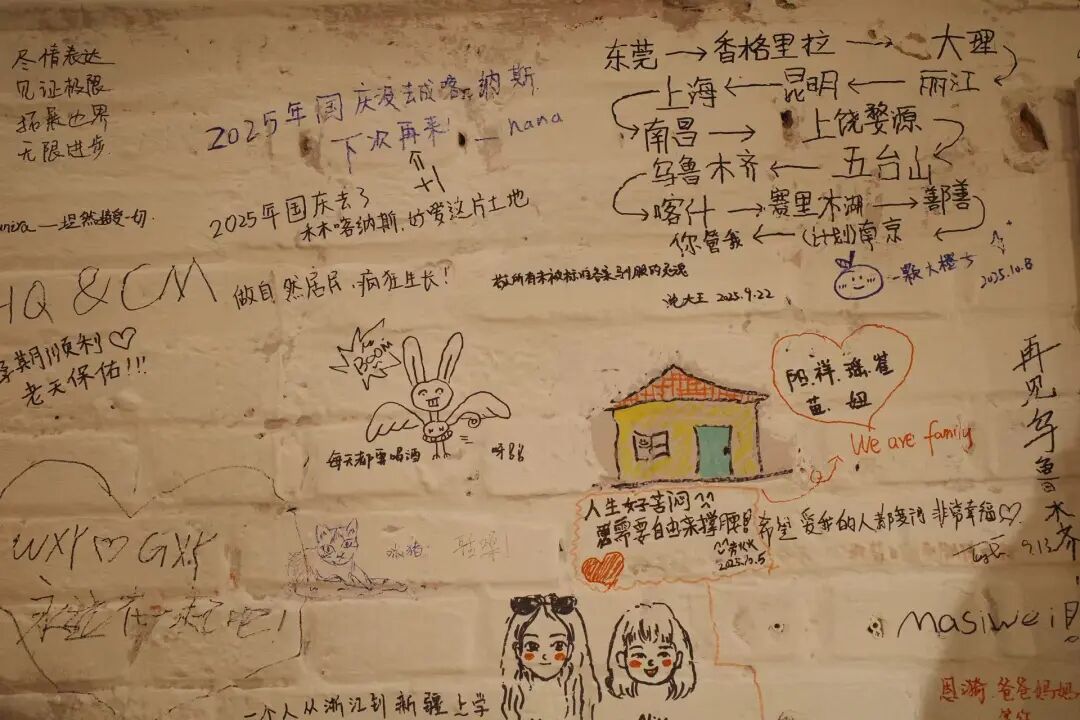 尽情表达
见证极限
拓展世界
无限进步
2025年国庆没去成喀纳斯
下次再来! — nana
+1
2025年国庆去了
禾木喀纳斯,
这片土地
坦然接受一切
HQ & CM
做自然居民,疯狂生长!
顺利♡
老天保佑!!!
东莞→香格里拉→大理
上海←昆明←丽江
南昌→上饶婺源
乌鲁木齐←五台山
喀什→赛里木湖→鄯善
你管我←(计划)南京
一颗大橙子
2025.10.8
2025.9.22
BOOM
每天都要喝酒
阳.祥.瑶.崔
蓝.妞
We are family
人生好苦闷
需要自由来撑腰!
2025.10.5
希望 爱我的人都 非常幸福♡
9.13
再见乌鲁木齐!
WXY♡GXY
永远在一起吧!
masiwei
一个人从浙江到新疆上学
恩漪.爸爸妈妈